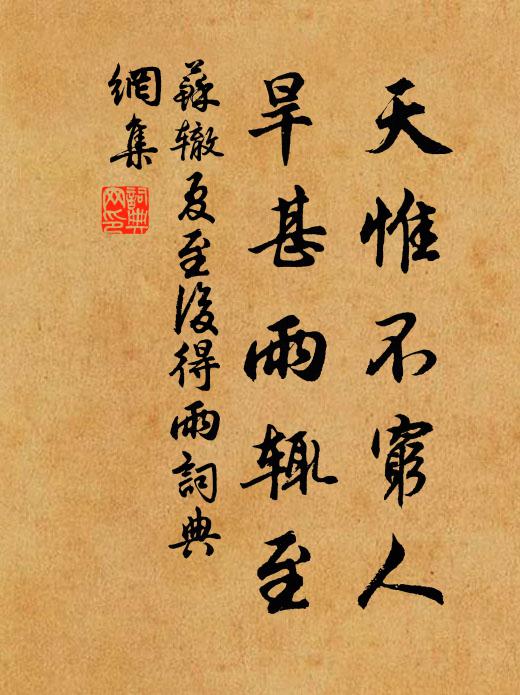 天惟不窮人
旱甚雨辄至
蘇辙夏至後得雨詞典
網集
詞典
网印